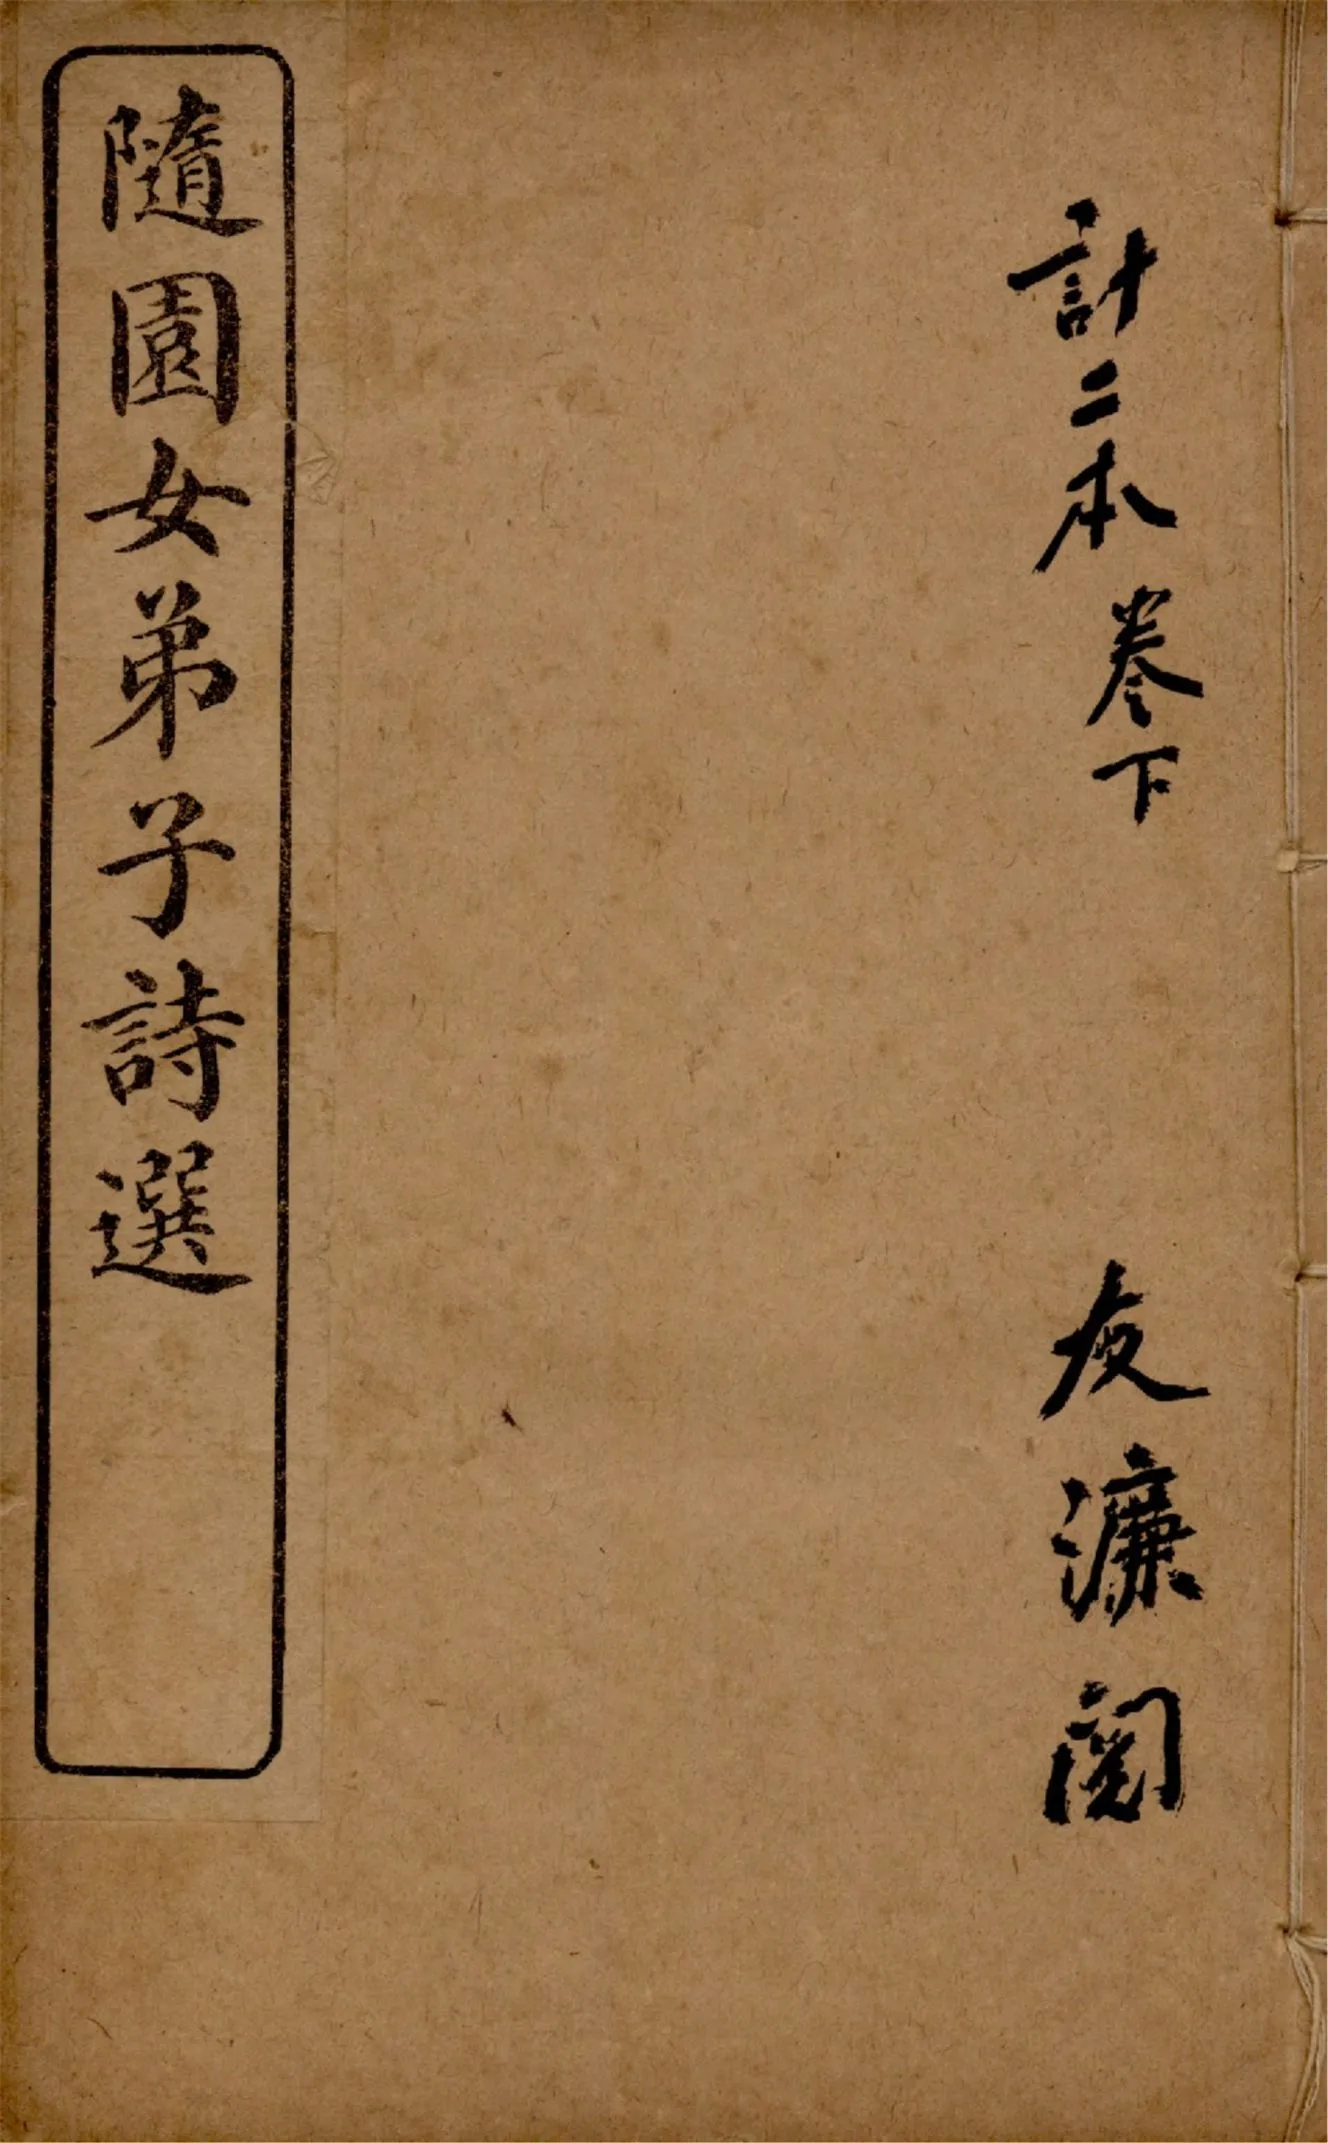 計二本 卷下
友濂閱
隨園女弟子詩選